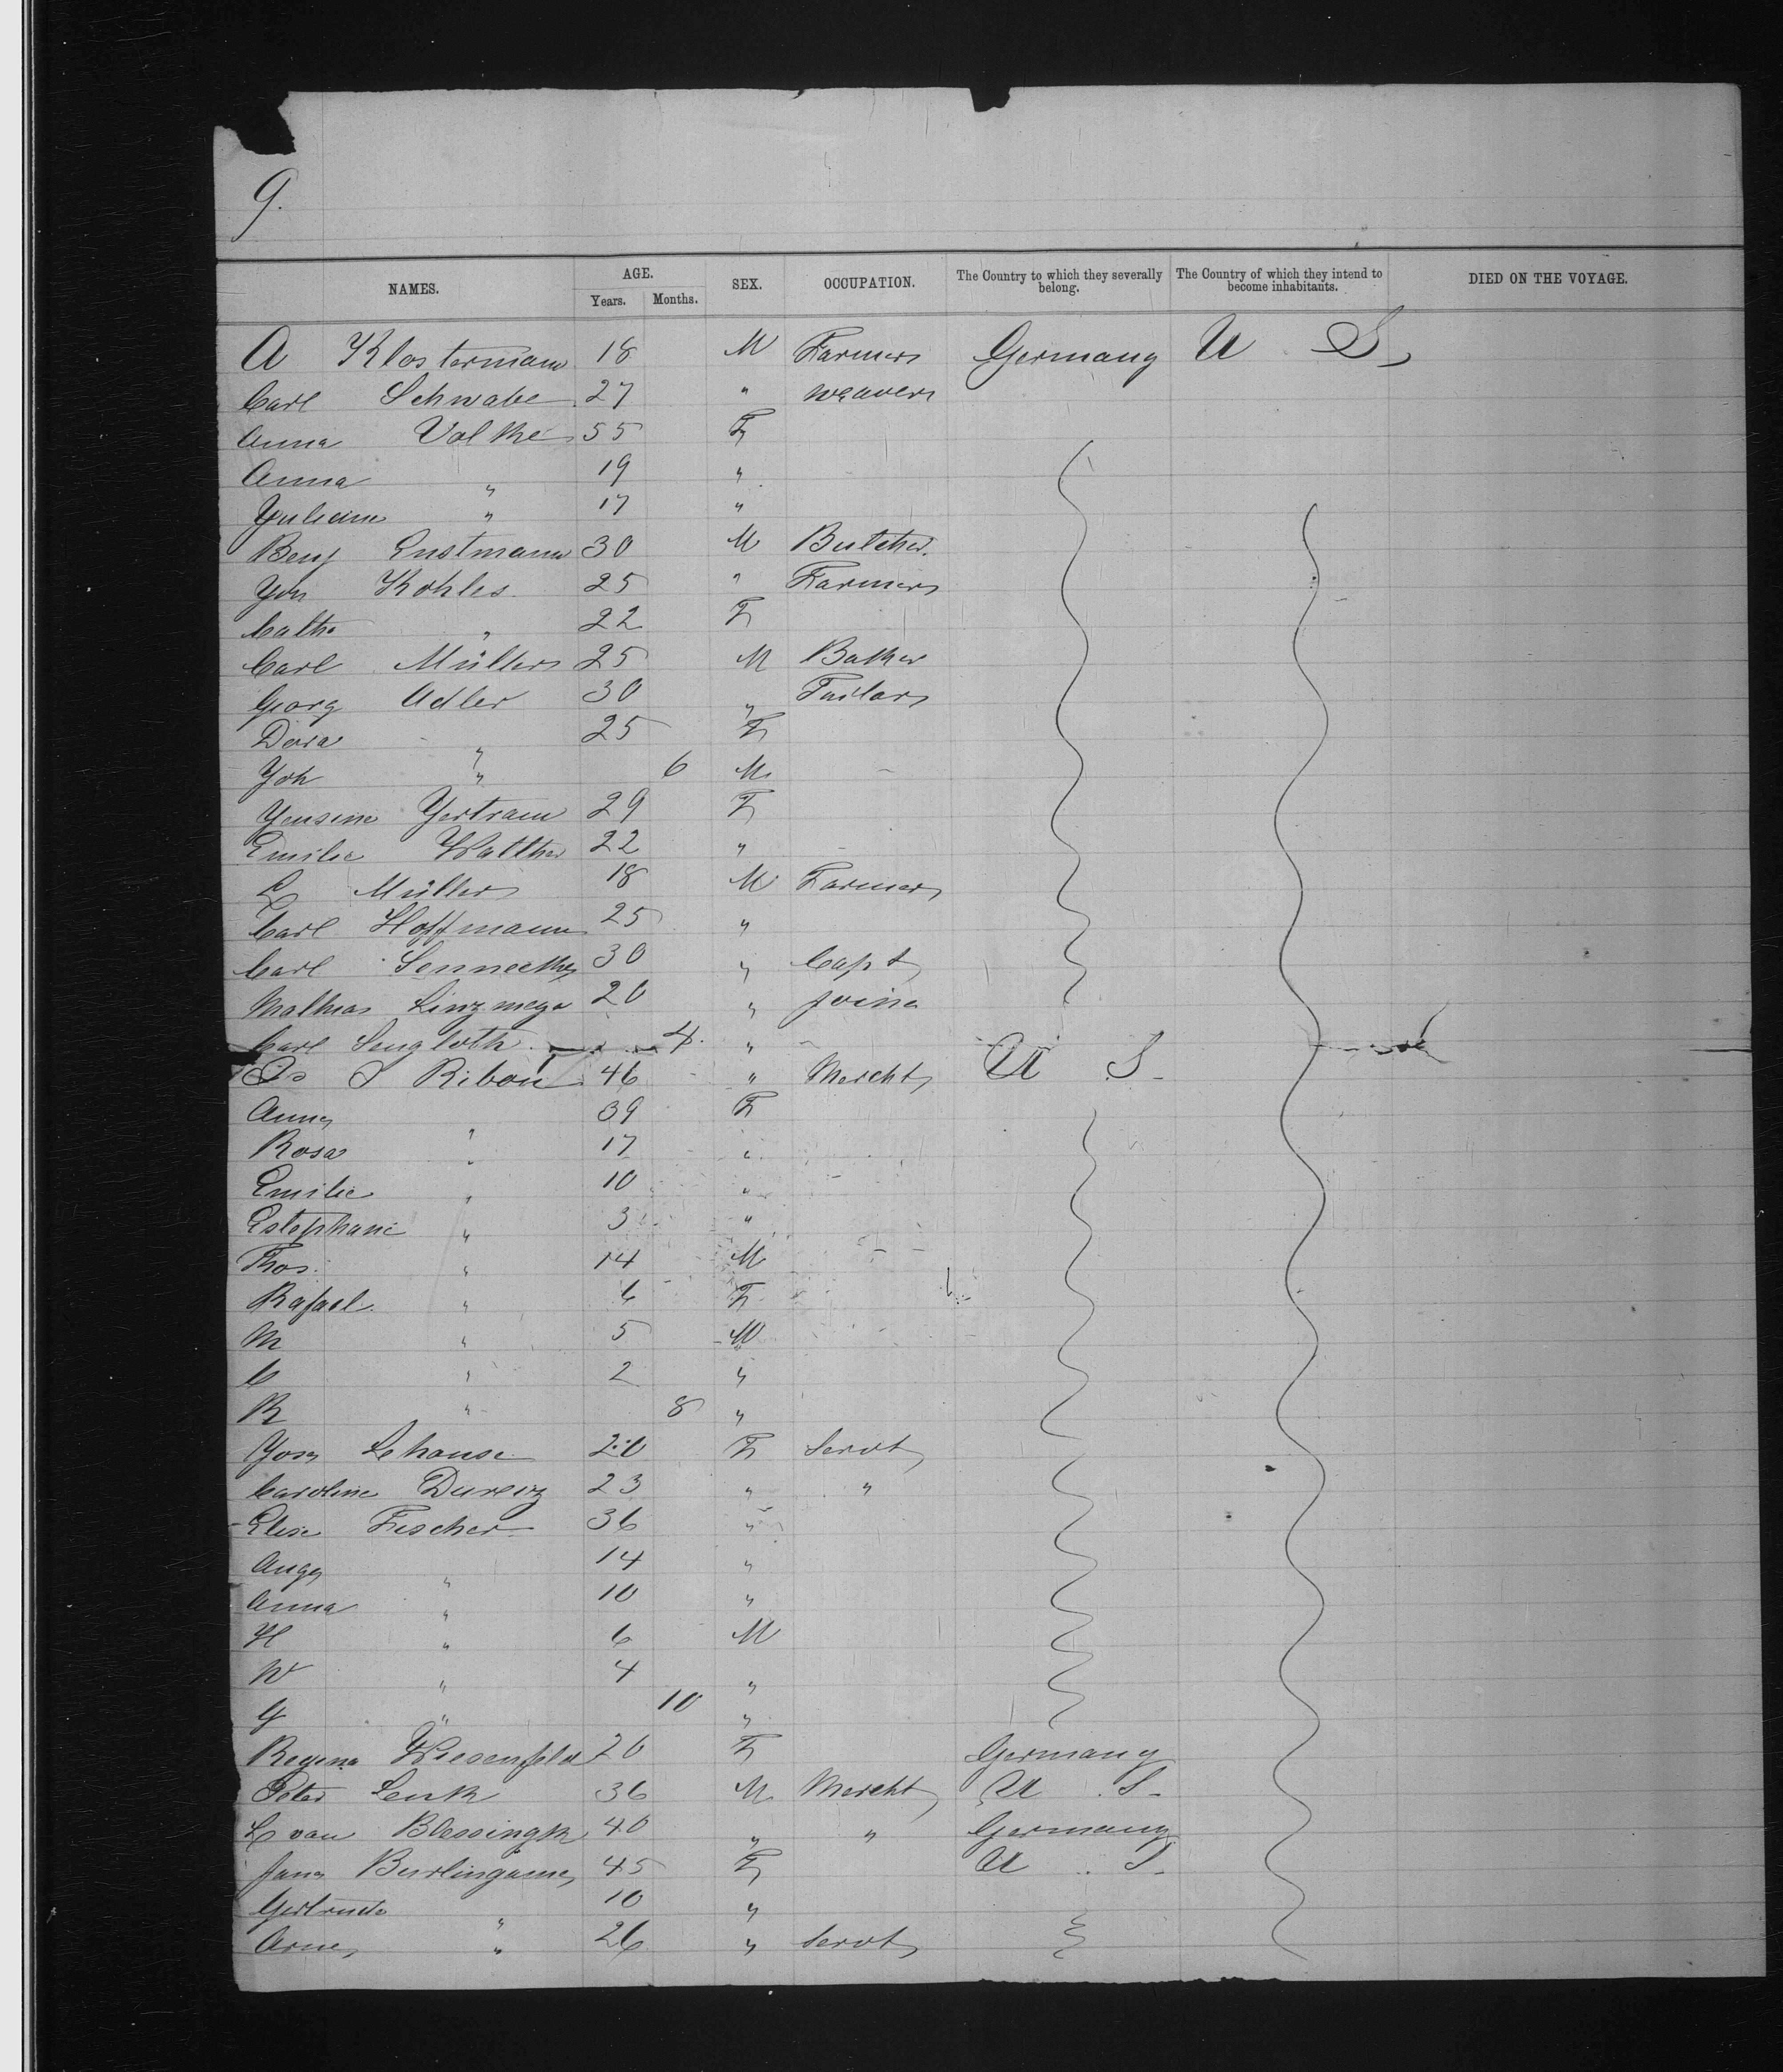 9.
NAMES. AGE. Years. Months. SEX. OCCUPATION. The Country to which they severally belong. The Country of which they intend to become inhabitants. DIED ON THE VOYAGE.
A Klostermann 18 M Farmer Germany U S
Carl Schwabe 27 " weaver
Anna Volke 55 F
Anna " 19 "
Yuliane " 17 "
Benj 30 M Butcher
Kohles 25 " Farmer
Cath " 22 F
Carl Müller 25 M Baker
Georg Adler 30 " Tailor
Dora " 25 F
Yoh " 6 M
Yensine Yertram 29 F
Emilie Walther 22 "
L Müller 18 M Farmer
Carl Hoffmann 25 "
Carl 30 " Capt
Mathias Linzmeye 20 " joine
Carl Sengloth 4 "
S Ribon 46 " Mercht U S
Anna " 39 F
Rosa " 17 "
Emilie " 10 "
Estephanie " 3 "
Thos. " 14 M
Rafael " 6 F
M " 5 M
C " 2 "
R " 8 "
Lehause 20 F Servt
Caroline 23 " "
Elise Fischer 36 "
Aug " 14 "
Anna " 10 "
H " 6 M
W " 4 "
G " 10 "
Regina Wiesenfeld 20 F Germany
Peter Lenk 36 M Mercht U S
L van Blessingk 40 " " Germany
Jane Burlingame 45 F U S
Gertrude " 10 "
" 26 " Servt